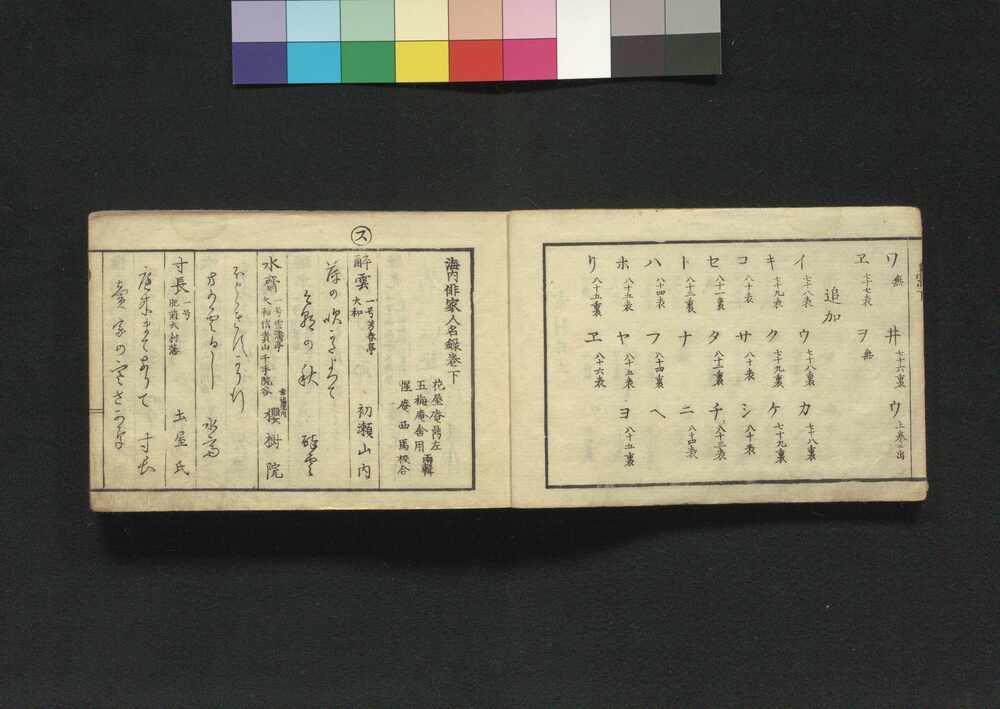 ワ 無 井 七十六裏 ウ 上巻ニ出
ヱ 七十七表 ヲ 無
追加
イ 七十八表 ウ 七十八裏 カ 七十八裏
キ 七十九表 ク 七十九裏 ケ 七十九裏
コ 八十表 サ 八十表 シ 八十表
セ 八十一裏 タ 八十二裏 チ 八十三表
ト 八十三裏 ナ ニ 八十四表
ハ 八十四表 フ 八十四裏 ヘ
ホ 八十五表 ヤ 八十五表 ヨ 八十五裏
リ 八十五裏 ヱ 八十六表
海内俳家人名録巻下
花屋庵舊左
五梅庵舎用 両輯
惺庵西馬校合
ス
酔雲 一号芳春亭 大和 初瀬山内
の秋 酔雲
水齋 大和信貴山千手院谷 櫻樹院
水齋
寸長 一号 肥前大村藩 土屋氏
寸長